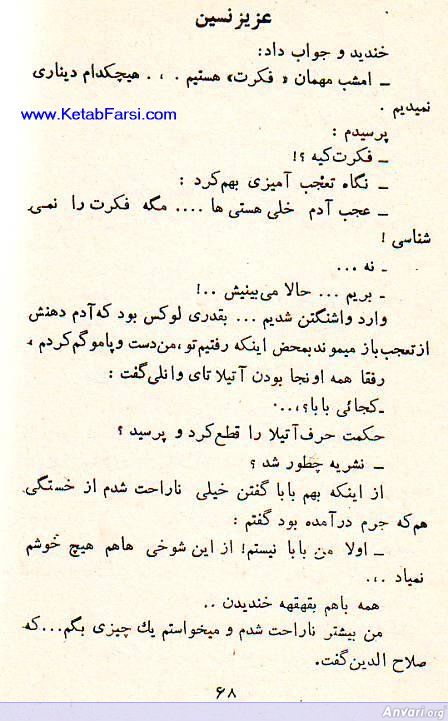 عزیز نسین
خندید و جواب داد:
ــ امشب مهمان «فکرت» هستیم . . . هیچکدام دیناری
نمیدیم .
www.KetabFarsi.com
پرسیدم :
ــ فکرت کیه ؟!
ــ نگاه تعجب آمیزی بهم کرد :
ــ عجب آدم خلی هستی ها .... مگه فکرت را نمی
شناسی !
ــ نه ...
ــ بریم ... حالا می‌بینیش ..!
وارد واشنگتن شدیم ... بقدری لوکس بود که آدم دهنش
از تعجب باز میموند بمحض اینکه رفتیم تو، من دست و پامو گم کردم ،
رفقا همه اونجا بودن آتیلا تای وانلی گفت :
ــ کجائی بابا؟،...
حکمت حرف آتیلا را قطع کرد و پرسید ؟
ــ نشریه چطور شد ؟
از اینکه بهم بابا گفتن خیلی ناراحت شدم از خستگی
هم که جرم درآمده بود گفتم :
ــ اولا من بابا نیستم! از این شوخی هاهم هیچ خوشم
نمیاد ...
همه باهم بقهقهه خندیدن ..
من بیشتر ناراحت شدم و میخواستم یك چیزی بگم... که
صلاح الدین گفت.
۶۸
Anvari.org